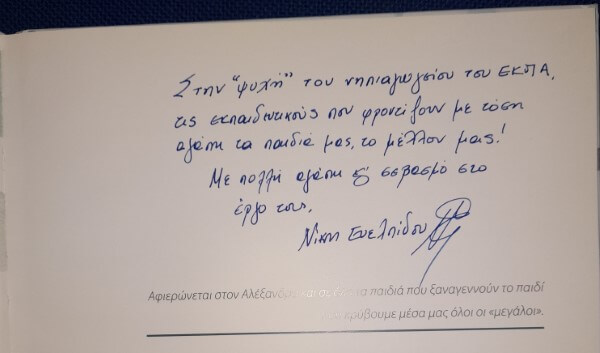 Στην "ψυχή" του νηπιαγωγείου του ΕΚΠΑ,
τις εκπαιδευτικούς που φροντίζουν με τόση
αγάπη τα παιδιά μας, το μέλλον μας!
Με πολλή αγάπη & σεβασμό στο
έργο τους,
Νίκη Ευελπίδου
Αφιερώνεται στον Αλέξανδρο και σε όλα τα παιδιά που ξαναγεννούν το παιδί
κρύβουμε μέσα μας όλοι οι «μεγάλοι».